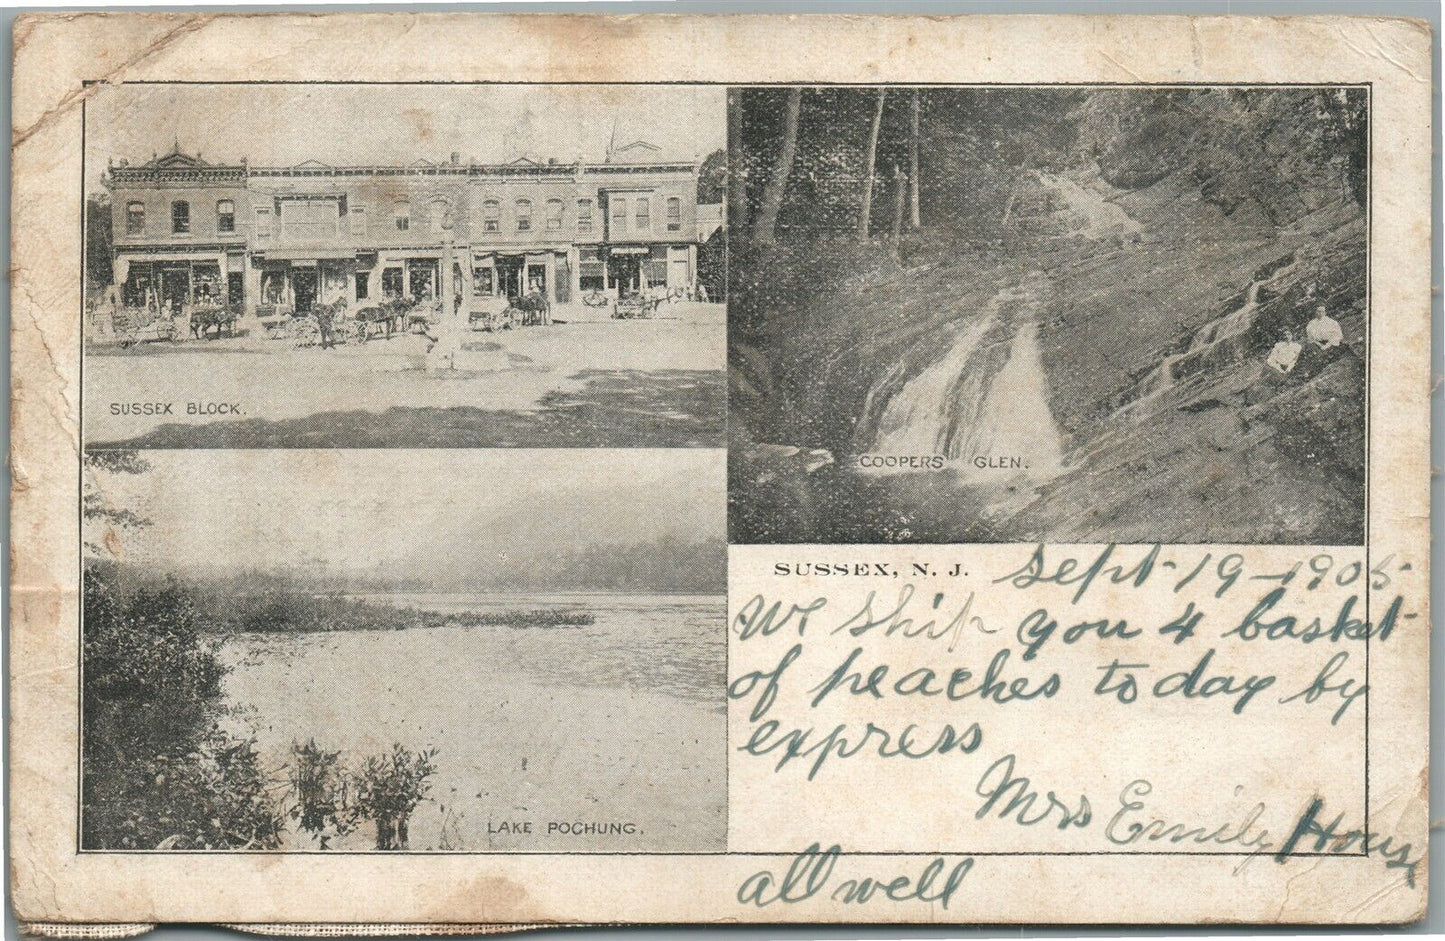 SUSSEX BLOCK.
COOPERS GLEN.
LAKE POCHUNG.
SUSSEX, N. J.
Sept-19-1905
We Ship you 4 basket
of peaches to day by
express
Mrs Emily House
all well